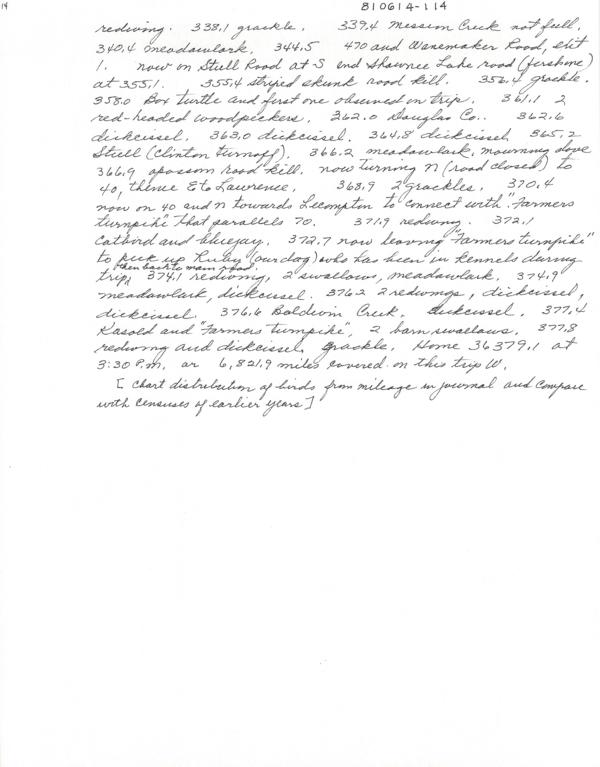 14
810614-114
redwing. 338.1 grackle. 339.4 Mission Creek not full.
340.4 meadowlark. 344.5 470 and Wanamaker Road, exit
1. now on Stull Road at S end Shawnee Lake road
at 355.1. 355.4 striped skunk road kill. 356.4 grackle.
358.0 Box turtle and first one observed on trip. 361.1 2
red-headed woodpeckers. 362.0 Douglas Co.. 362.6
dickcissel. 363.0 dickcissel. 364.8 dickcissel. 365.2
Stull (Clinton turnoff). 366.2 meadowlark, mourning dove
366.9 opossom road kill. now turning N (road closed) to
40, thence E to Lawrence. 368.9 2 grackles. 370.4
now on 40 and N towards Lecompton to connect with "Farmers
turnpike" that parallels 70. 371.9 redwing. 372.1
catbird and bluejay. 372.7 now leaving "Farmers turnpike"
to pick up Ruby (our dog) who has been in kennels during
then back to main road.
trip, 374.1 redwing, 2 swallows, meadowlark. 374.9
meadowlark, dickcissel. 376.2 2 redwings, dickcissel,
dickcissel. 376.6 Baldwin Creek, dickcissel. 377.4
Kasold and "Farmers turnpike", 2 barn swallows. 377.8
redwing and dickcissel, grackle. Home 36379.1 at
3:30 P.m. or 6,821.9 miles covered on this trip W.
[ Chart distribution of birds from mileage in journal and compare
with censuses of earlier years ]